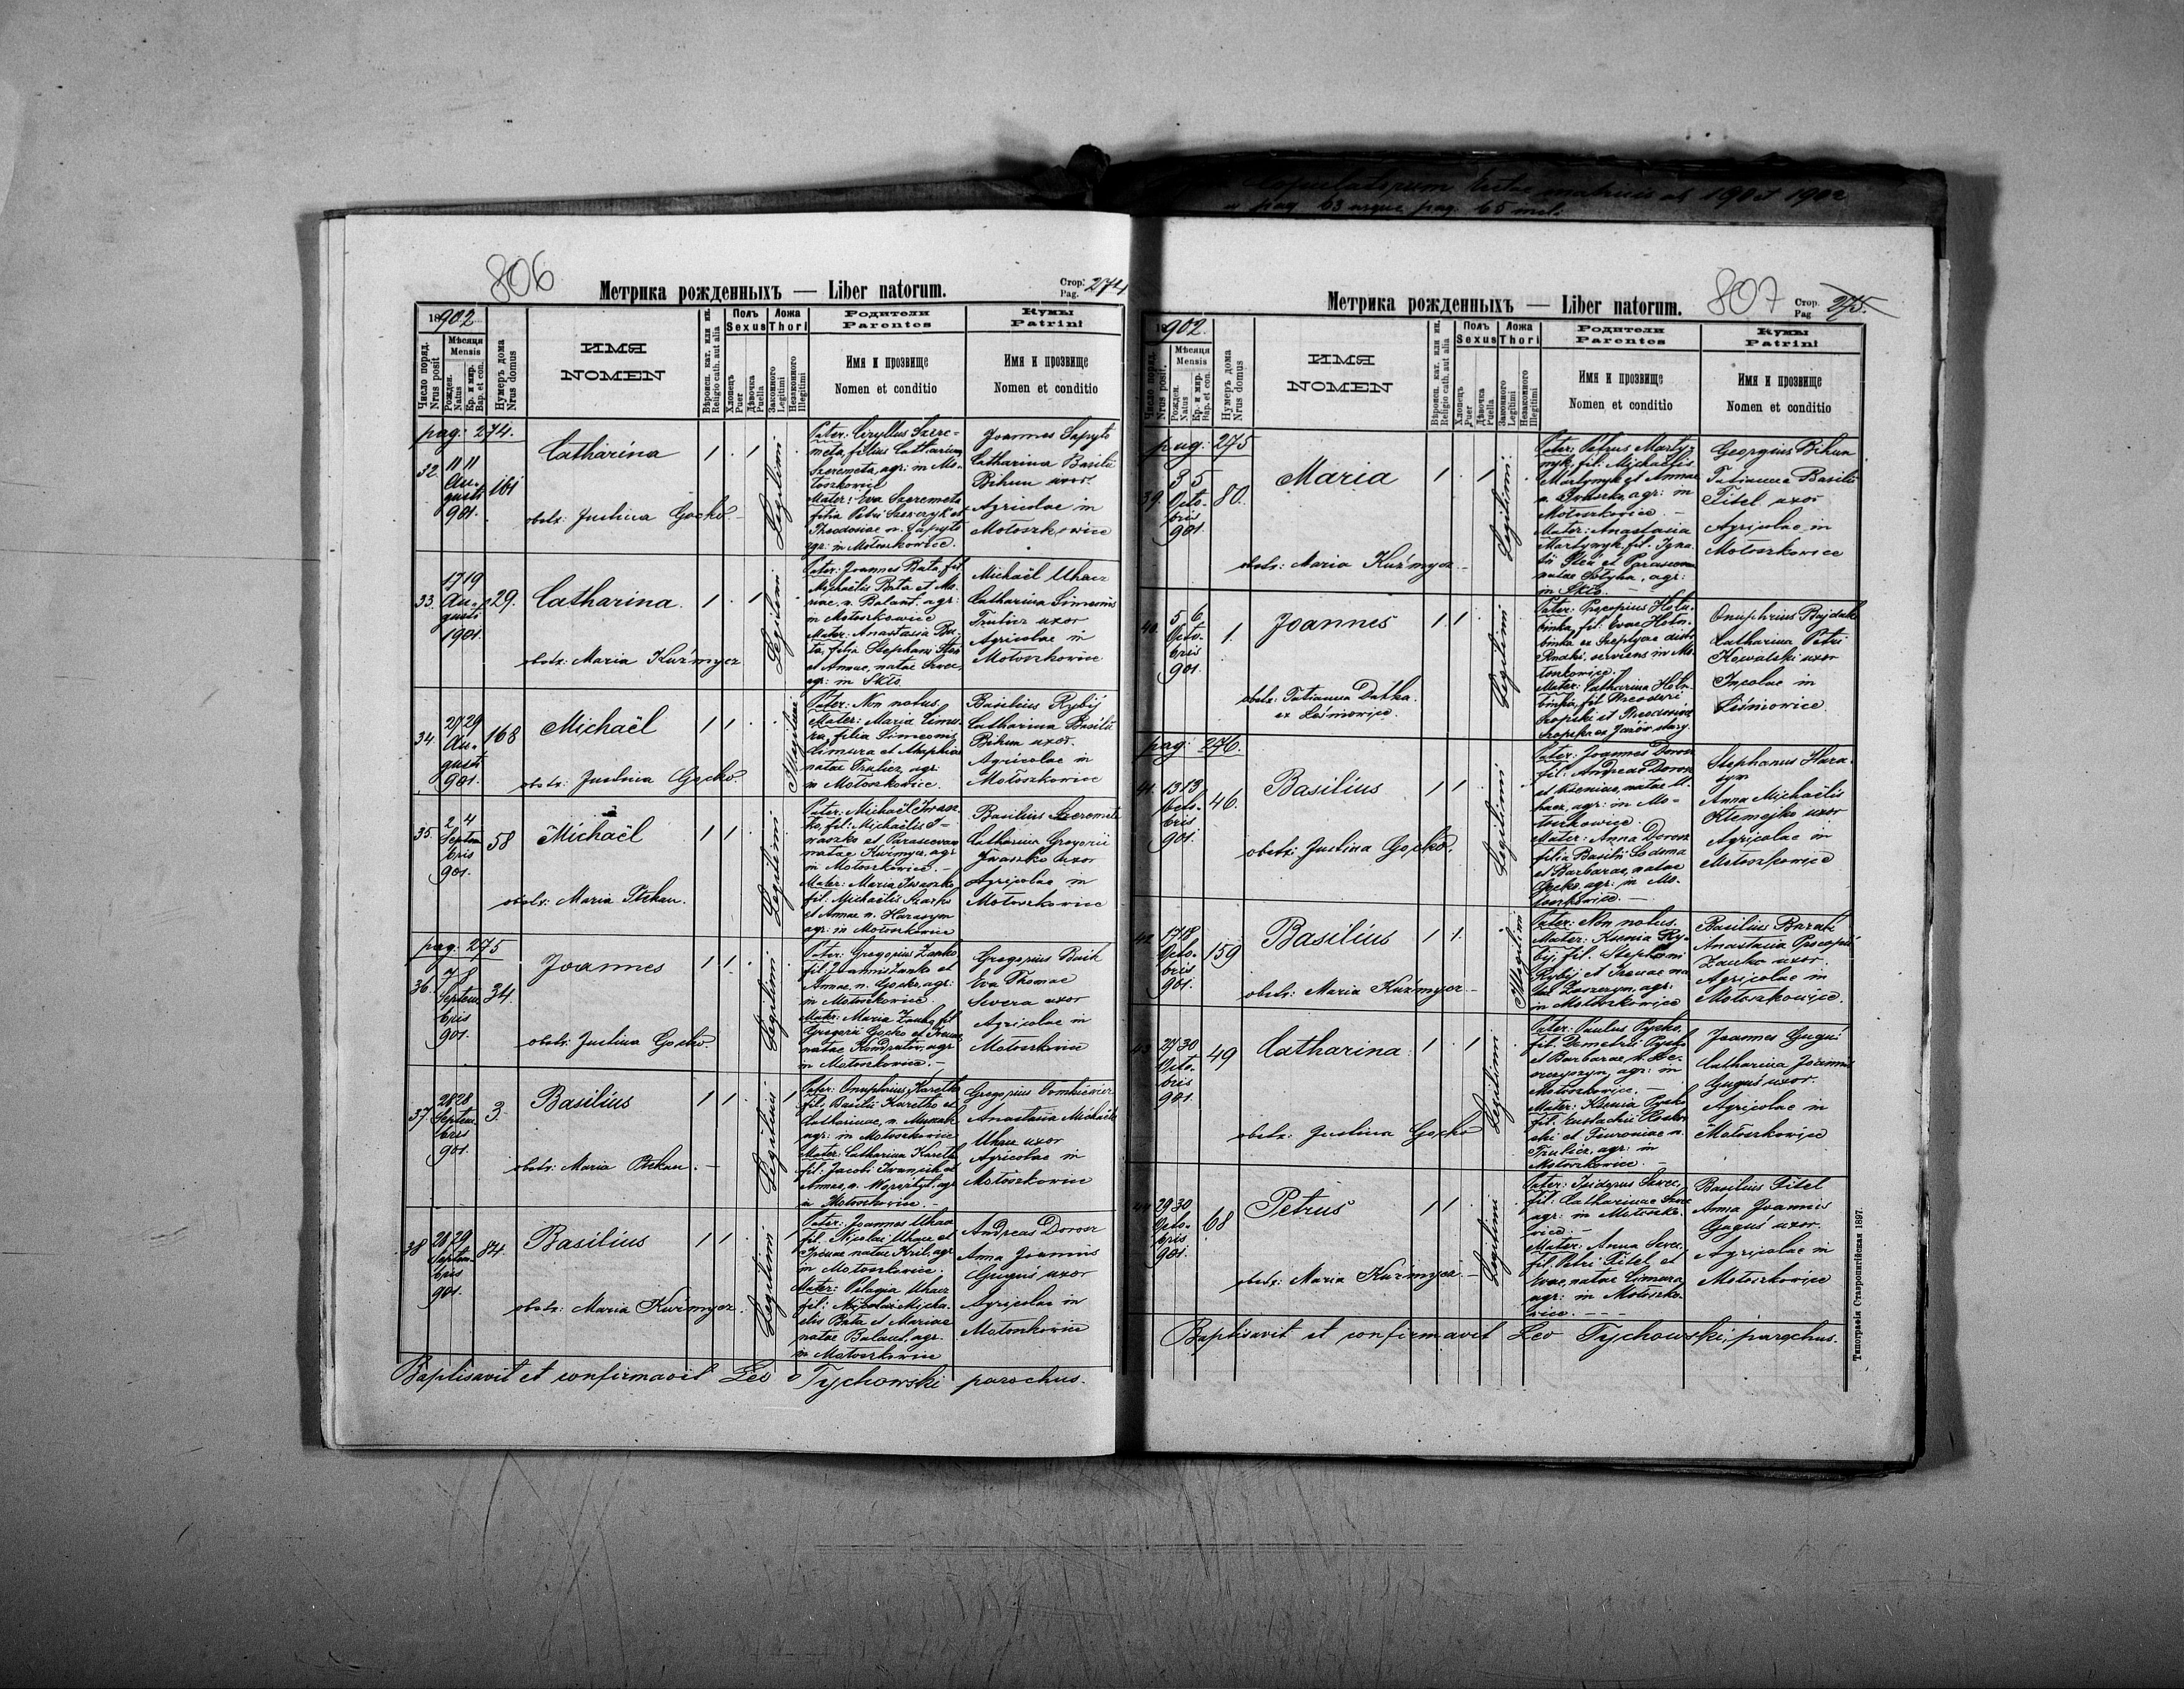 806
Метрика рожденныхъ — Liber natorum.
Стор.
Pag. 274
1902
Число поряд.
Nrus posit
Мѣсяця
Mensis
Рожден.
Natus
Кр. и мир.
Bap. et con.
Нумеръ дома
Nrus domus
ИМЯ
NOMEN
Вѣроисп. кат. или ин.
Religio cath. aut alia
Полъ
Sexus
Хлопець
Puer
Дѣвочка
Puella
Ложа
Thori
Законного
Legitimi
Незаконного
Illegitimi
Родители
Parentes
Имя и прозвище
Nomen et conditio
Кумы
Patrini
Имя и прозвище
Nomen et conditio
pag: 274.
32 11 11
Augusti
901.
161
Catharina
obstr: Justina Gocko
1 1
Legitimi
Pater: Cyryllus Szeremeta, filius Catharinae
Szeremeta, agr: in Mo-
łoszkowice
Mater: Eva Szeremeta
filia Petri Szewczyk et
Theodosiae n. Sapyto
agr: in Mołoszkowice.
Joannes Sapyto
Catharina Basilii
Bihun uxor.
Agricolae in
Mołoszkowice
33. 17 19
Augusti
1901.
29.
Catharina
obstr: Maria Kuźmycz
1 1
Legitimi
Pater: Joannes Bata, fil
Michaelis Bata et Ma-
riae, n. Balant. agr:
in Mołoszkowice
Mater: Anastasia Ba-
ta, filia Stephani
et Annae, natae Szwec,
agr: in Skło
Michaël Uhacz
Catharina Simeonis
Trulicz uxor
Agricolae in
Mołoszkowice
34. 27 29
Augusti
901.
168
Michaël
obstr: Justina Gocko
1 1
Illegitimi
Pater: Non notus.
Mater: Maria Cimura, filia Simeonis
Cimura et
natae Trulicz, agr:
in Mołoszkowice.
Basilius Rybij
Catharina Basilii
Bihun uxor.
Agricolae in
Mołoszkowice
35. 2 4
Septembris
901.
58
Michaël
obstr: Maria Ptekau.
1 1
Legitimi
Pater: Michaël Iwasz-
ko, fil: Michaelis I-
waszko et Parascevae
natae Kuźmycz, agr
in Mołoszkowice. —
Mater: Maria Iwaszko,
fil. Michaelis
et Annae n. Harasym
agr: in Mołoszkowice
Basilius Szeremeta
Catharina Gregorii
Iwaszko uxor
Agricolae in
Mołoszkowice
pag: 275
36. 7 8
Septembris
901.
34.
Joannes
obstr: Justina Gocko.
1 1
Legitimi
Pater: Gregorius Zanko
fil. Joannis Zanko et
Annae, n. Gocko, agr:
in Mołoszkowice.
Mater: Maria Zanko, fil
Gregorii Gocko et Irenae
natae Kondrator, agr
in Mołoszkowice. —
Gregorius Buik
Eva Thomae
Swera uxor
Agricolae in
Mołoszkowice
37 28 28
Septembris
901.
3.
Basilius
obstr: Maria Ptekau. —
1 1
Legitimi
Pater: Onuphrius Karetko
fil. Basilii Karetko et
Catharinae, n.
agr: in Mołoszkowice
Mater: Catharina Karetko
fil: Jacobi Iwanick et
Annae, n. agr
in Mołoszkowice. —
Gregorius Tomkiewicz
Anastasia Michaelis
Uhacz uxor
Agricolae in
Mołoszkowice
38 28 29
Septembris
901.
84.
Basilius
obstr: Maria Kuźmycz.
1 1
Legitimi
Pater: Joannes Uhacz
fil. Nicolai Uhacz et
Irenae natae Kril, agr
in Mołoszkowice.
Mater: Pelagia Uhacz
fil: Micha-
elis Bata et Mariae
natae Balant, agr.
in Mołoszkowice
Andreas Dorosz
Anna Joannis
Guguś uxor
Agricolae in
Mołoszkowice
Baptisavit et confirmavit Leo Tychowski parochus.
copulatorum
pag. 63 usque pag. 65 incl.
Метрика рожденныхъ — Liber natorum.
807
Стор.
Pag. 275.
1902
Число поряд.
Nrus posit.
Мѣсяця
Mensis
Рожден.
Natus
Кр. и мир.
Bap. et con.
Нумеръ дома
Nrus domus
ИМЯ
NOMEN
Вѣроисп. кат. или ин.
Religio cath. aut alia
Полъ
Sexus
Хлопець
Puer
Дѣвочка
Puella
Ложа
Thori
Законного
Legitimi
Незаконного
Illegitimi
Родители
Parentes
Имя и прозвище
Nomen et conditio
Кумы
Patrini
Имя и прозвище
Nomen et conditio
pag: 275
39. 3 5
Octobris
901.
80.
Maria
obstr: Maria Kuźmycz —
1 1
Legitimi
Pater: Petrus Marty-
nyk, fil: Michaelis
Martynyk et Annae
n. Iwaszko, agr: in
Mołoszkowice. —
Mater: Anastasia
Martynyk, fil. Igna-
tii et Parascevae
natae Sotyha, agr:
in Skło. —
Georgius Bihun
Tatianna Basilii
Titel uxor
Agricolae in
Mołoszkowice
40. 5 6
Octobris
901.
1.
Joannes
obstr: Tatianna Datka.
ex Leśniowice.
1 1
Legitimi
Pater: Procopius Hołu-
binka, fil: Evae Hołu-
binka ex Szeptyce distr
Rudki, serviens in Mo-
łoszkowice.
Mater: Catharina Hołu-
binka, fil Theodori
et Theodosiae
ex Jazów stary.
Onuphrius Bujdak
Catharina Petri
Kowalski uxor
Incolae in
Leśniowice.
pag: 276.
41. 13 13
Octobris
901.
46.
Basilius
obstr: Justina Gocko.
1 1
Legitimi
Pater: Joannes Dorosz
fil: Andreae Dorosz
et Kseniae, natae U-
hacz, agr: in Mo-
łoszkowice.
Mater: Anna Dorosz
filia Basilii Sodoma
et Barbarae, natae
Gocko, agr: in Mo-
łoszkowice. —
Stephanus Hara-
sym
Anna Michaelis
Ktemejko uxor
Agricolae in
Mołoszkowice
42. 17 18
Octobris
901.
159
Basilius
obstr: Maria Kuźmycz —
1 1.
Illegitimi
Pater: Non notus.
Mater: Ksenia Ry-
bij, fil. Stephani
Rybij et Irenae na-
tae agr:
in Mołoszkowice
Basilius
Anastasia Procopii
Zanko uxor.
Agricolae in
Mołoszkowice.
43 29 30
Octobris
901.
49
Catharina
obstr: Justina Gocko
1 1
Legitimi
Pater: Paulus Pycko,
fil. Demetrii Pycko
et Barbarae, n.
agr: in
Mołoszkowice. —
Mater: Ksenia Pycko
fil. Eustachii
et Feuroniae n.
Trulicz, agr: in
Mołoszkowice. —
Joannes Guguś
Catharina Joannis
Guguś uxor.
Agricolae in
Mołoszkowice
44 29 30
Octobris
901.
68
Petrus
obstr: Maria Kuźmycz. —
1 1
Legitimi
Pater: Isidorus Szwec,
fil. Catharinae Szwec
agr: in Mołoszko-
wice —
Mater: Anna Szwec,
fil. Petri Titel et
Evae, natae Cimura,
agr: in Mołoszko-
wice. — — —
Basilius Titel
Anna Joannis
Guguś uxor.
Agricolae in
Mołoszkowice
Baptisavit et confirmavit Leo Tychowski, parochus.
Типографія Ставропигійская 1897.